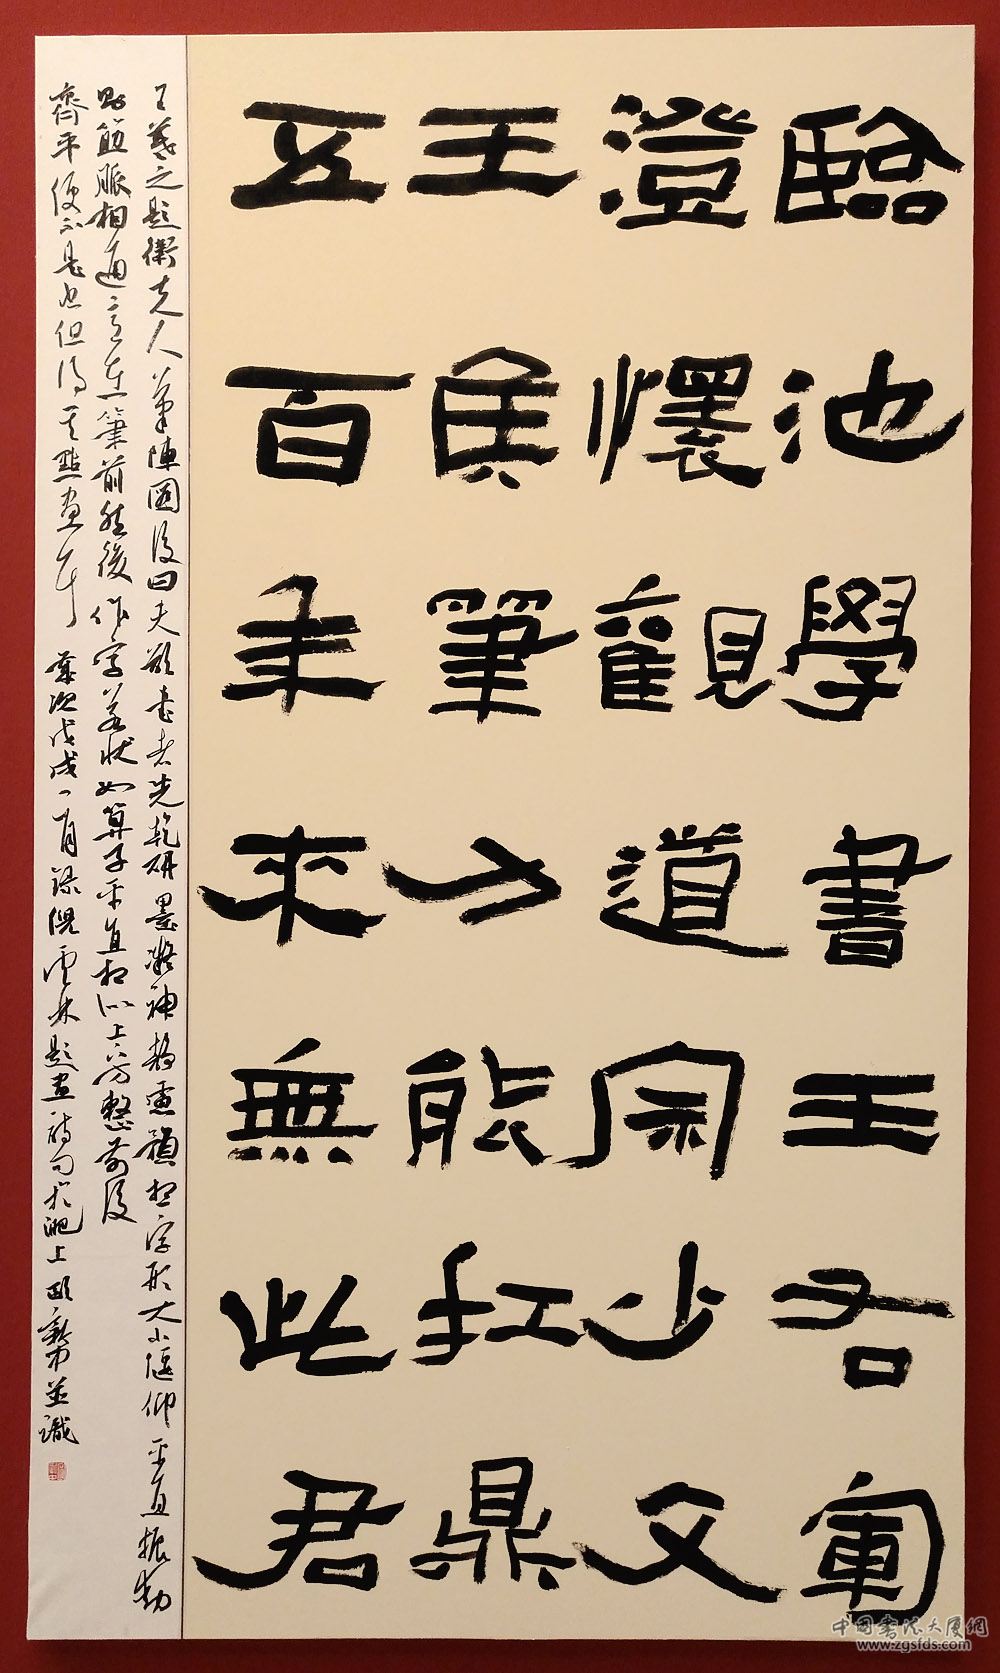 臨池學書王右軍
澄懷觀道宗少文
王侯筆力能扛鼎
五百年來無此君
王羲之題衛夫人筆陣圖後曰夫欲書者先乾研墨凝神靜慮預想字形大小偃仰平直振動
則筋脈相通意在筆前然後作字若狀如算子平直相似上下方整前後
齊平便不是書但得其點畫耳 歲次戊戌 月錄倪雲林題畫詩句於淝上 並識
中国书法大厦網
www.zgsfds.com